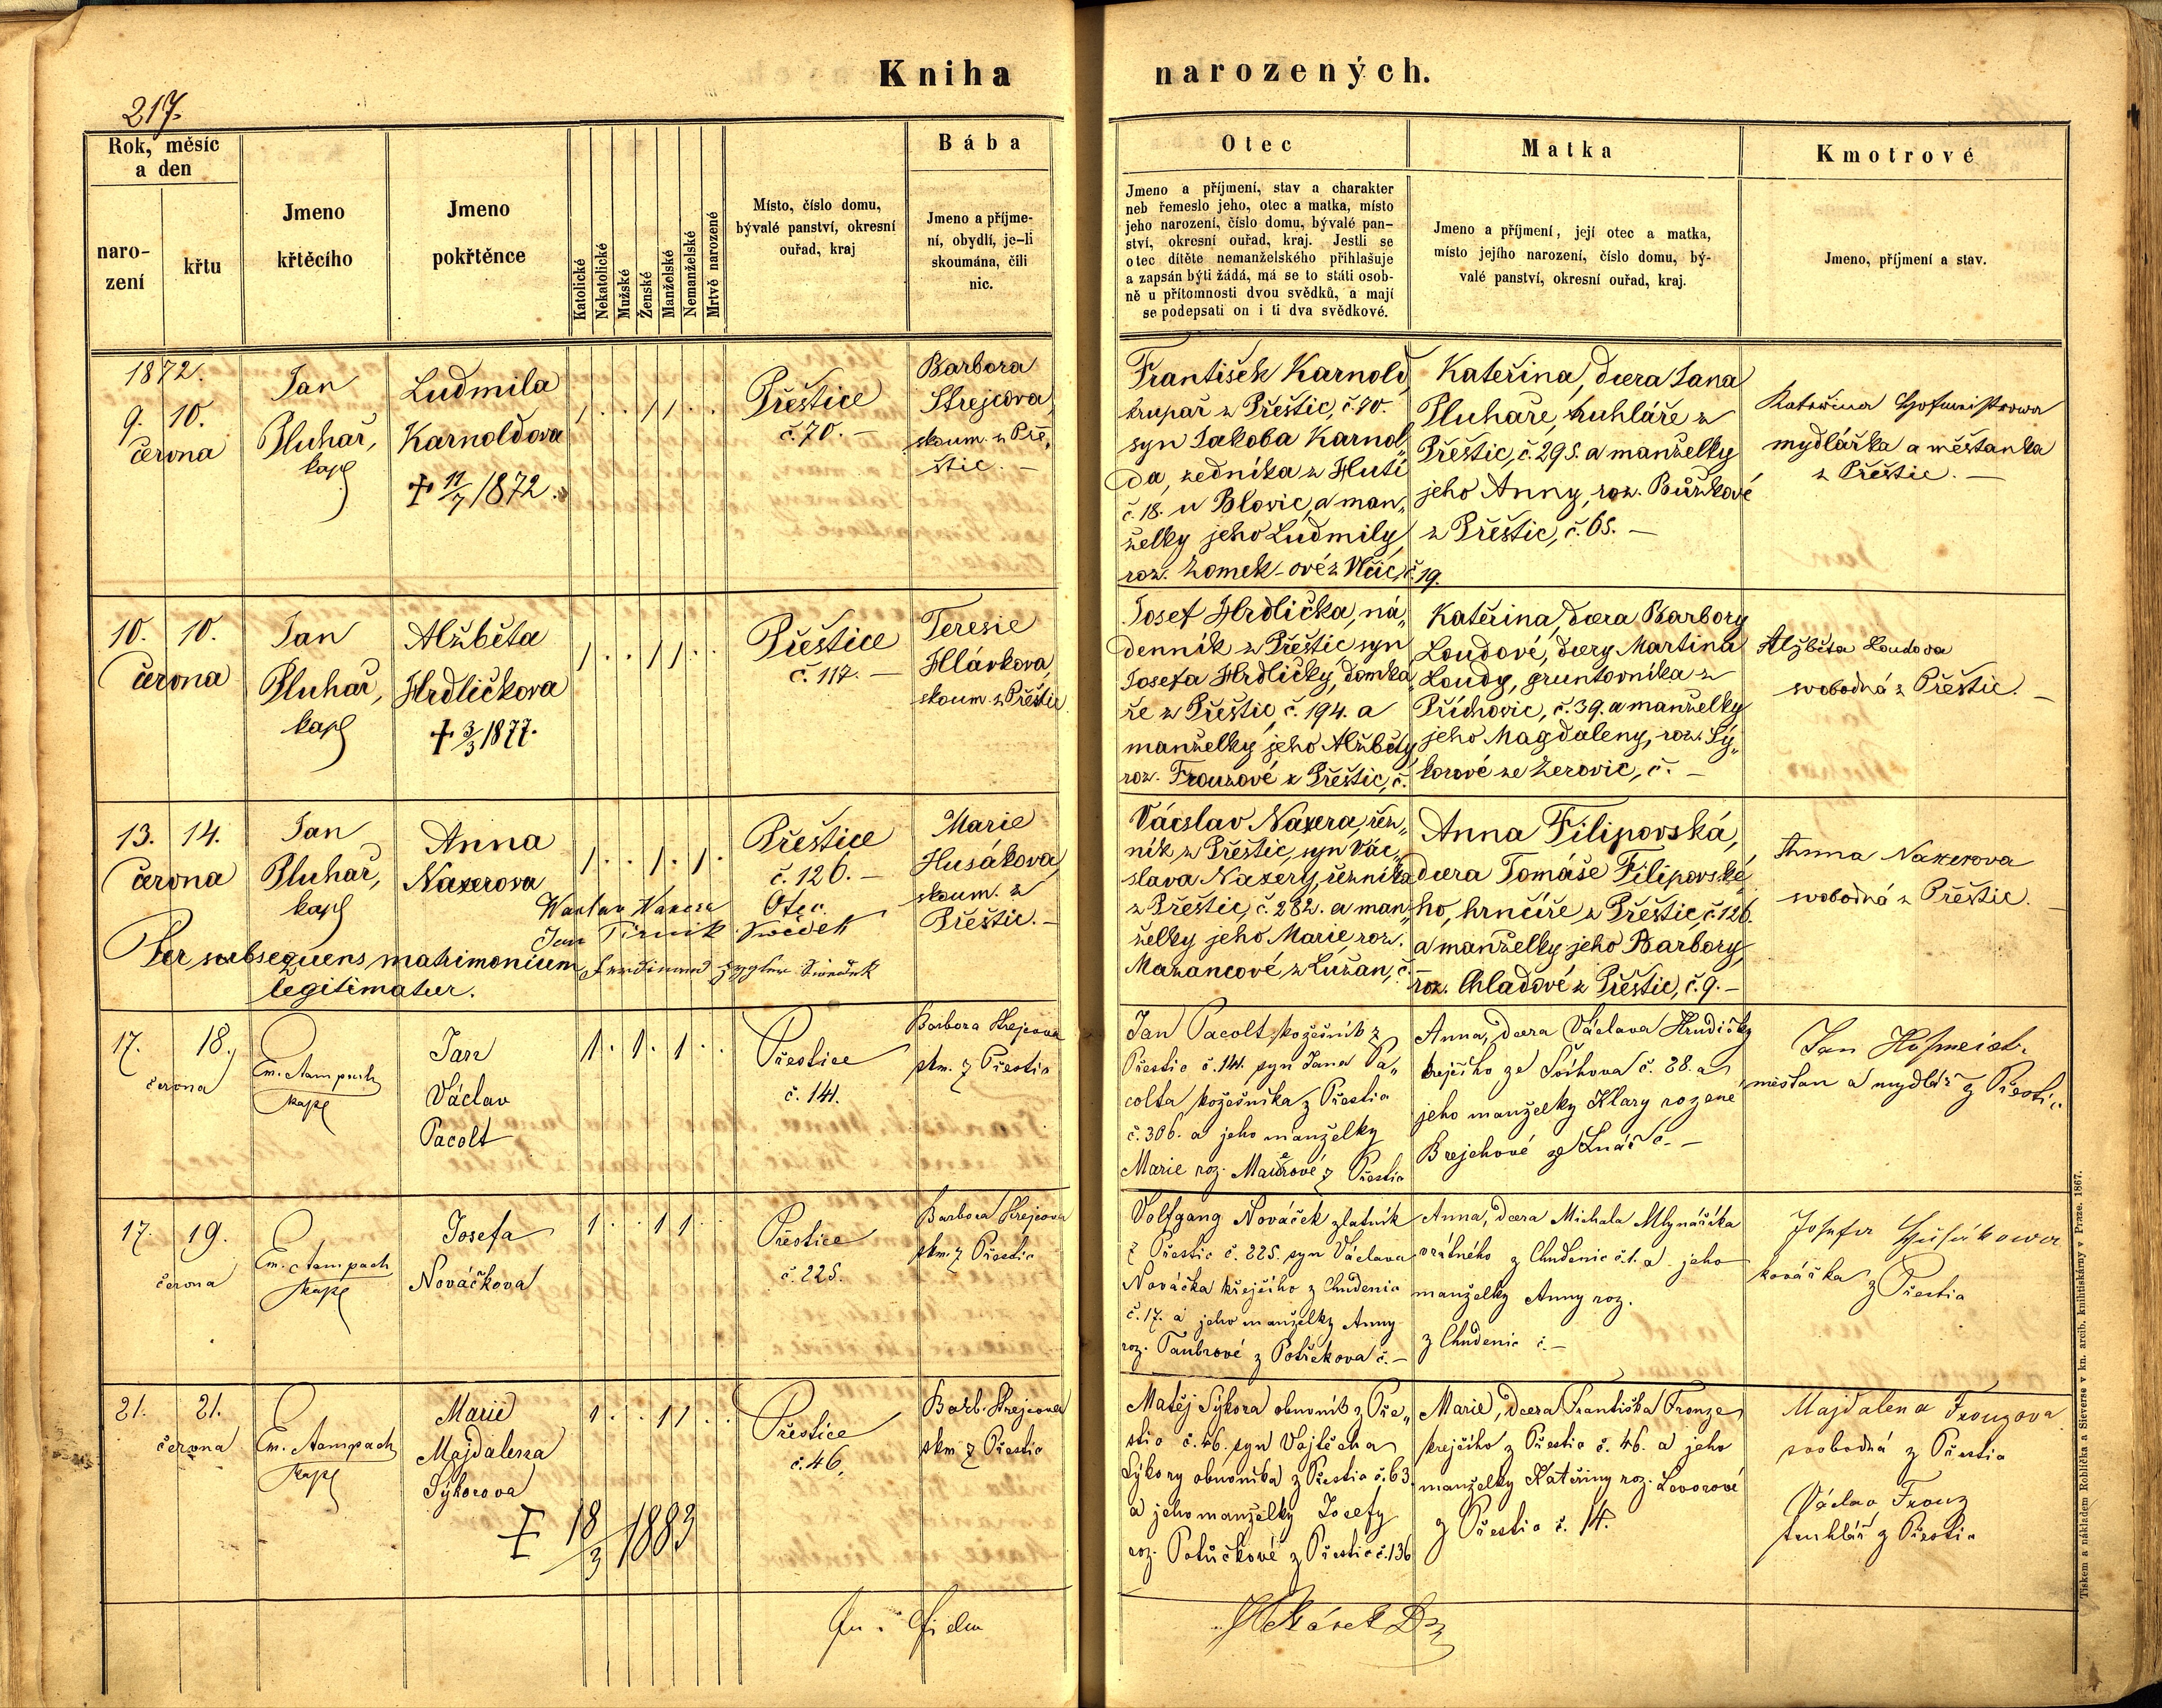 Kniha narozených.
217.
Rok, měsíc a den
naro-
zení
křtu
Jmeno
křtěcího
Jmeno
pokřtěnce
Katolické
Nekatolické
Mužské
Ženské
Manželské
Nemanželské
Mrtvě narozené
Místo, číslo domu,
bývalé panství, okresní
ouřad, kraj
Bába
Jmeno a příjme-
ní, obydlí, je-li
skoumána, čili
nic.
Otec
Jmeno a příjmení, stav a charakter
neb řemeslo jeho, otec a matka, místo
jeho narození, číslo domu, bývalé pan-
ství, okresní ouřad, kraj. Jestli se
otec dítěte nemanželského přihlašuje
a zapsán býti žádá, má se to státi osob-
ně u přítomnosti dvou svědků, a mají
se podepsati on i ti dva svědkové.
Matka
Jmeno a příjmení, její otec a matka,
místo jejího narození, číslo domu, bý-
valé panství, okresní ouřad, kraj.
Kmotrové
Jmeno, příjmení a stav.
1872.
9. 10.
června
Jan
Pluhař,
kapl
Ludmila
Karnoldova
+ 11/7 1872.
1 . . 1 1 . .
Přeštice
č. 70. –
Barbora
Strejcova,
skoum. z Pře„
štic. –
František Karnold,
krupař z Přeštic, č. 70.
syn Jakoba Karnol„
da, zedníka z Hutí
č. 18. u Blovic, a man„
želky jeho Ludmily,
roz. Zomek-ové z Vlčic, č. 19.
Kateřina, dcera Jana
Pluhaře, truhláře z
Přeštic, č. 295. a manželky
jeho Anny, roz. Bůžkové
z Přeštic, č. 65. –
Kateřina Hofmistrowa
mydlářka a měštanka
z Přeštic. –
10. 10.
června
Jan
Pluhař,
kapl
Alžběta
Hrdličkova
+ 3/3 1877.
1 . . 1 1 . .
Přeštice
č. 117. –
Teresie
Hlávkova,
skoum. z Přeštic
Josef Hrdlička, ná„
denník z Přeštic syn
Josefa Hrdličky, domka„
ře z Přeštic, č. 194. a
manželky jeho Alžběty,
roz. Frouzové z Přeštic, č.
Kateřina, dcera Barbory
Loudové, dcery Martina
Loudy, gruntovníka z
Příchovic, č. 39. a manželky
jeho Magdaleny, roz. Sý„
korové ze Zerovic, č. –
Alžběta Loudova
svobodná z Přeštic. –
13. 14.
června
Jan
Pluhař,
kapl
Anna
Naxerova
1 . . 1 . 1 .
Přeštice
č. 126. –
Marie
Husákova,
skoum. z
Přeštic. –
Waclav Naxera Otec.
Jan Svědek
Per subsequens matrimonium Ferdinand Svědek
legitimatur.
Vácslav Naxera, řez„
ník z Přeštic, syn Vác„
slava Naxery, řezníka
z Přeštic, č. 282. a man„
želky jeho Marie, roz.
Mazancové z Lužan, č. –
Anna Filipovská,
dcera Tomáše Filipovské„
ho, hrnčíře z Přeštic, č. 126.
a manželky jeho Barbory,
roz. Chladové z Přeštic, č. 9. –
Anna Naxerova
svobodná z Přeštic. –
17. 18.
června
Em. Aampach
kapl
Jan
Václav
Pacolt
1 . 1 . 1 . .
Přestice
č. 141.
Barbora Strejcova
skm. z Přestic
Jan Pacolt, kožešník z
Přestic č. 141. syn Jana Pa„
colta, kožešníka z Přestic
č. 306. a jeho manželky
Marie roz. Maurové z Přestic
Anna, dcera Václava Hrudičky
krejčího ze Švihova č. 28. a
jeho manželky Klary rozene
Brejchové ze Lnář č. –
Jan Hofmeistr
mešťan a mydlář z Přestic
17. 19.
června
Em. Aampach
kapl
Josefa
Nováčkova
1 . . 1 1 . .
Přestice
č. 225.
Barbora Strejcova
skm. z Přestic
Volfgang Nováček zlatník
z Přestic č. 225. syn Václava
Nováčka krejčího z Chudenic
č. 17. a jeho manželky Anny
roz. Taubrové z Potřekova č. –
Anna, dcera Michala Mlynářika
vrátného z Chudenic č. 1. a jeho
manželky Anny roz.
z Chudenic č. –
Josefa Husákowa
kovářka z Přestic
21. 21.
června
Em. Aampach
kapl
Marie
Majdalena
Sýkorova
+ 18/3 1883
1 . . 1 1 . .
Přestice
č. 46.
Barb. Strejcova
skm. z Přestic
Matěj Sýkora obuvník z Pře„
stic č. 46. syn Vojtěcha
Sýkory obuvníka z Přestic č. 63.
a jeho manželky Josefy
roz. Potůčkové z Přestic č. 136
Marie, dcera Františka Frouze
krejčího z Přestic č. 46. a jeho
manželky Kateřiny roz. Levorové
z Přestic č. 14.
Majdalena Frouzova
svobodná z Přestic
Václav Frouz
truhlář z Přestic
Tiskem a nákladem Rohlíčka a Sieverse v kn. arcib. knihtiskárny v Praze. 1867.